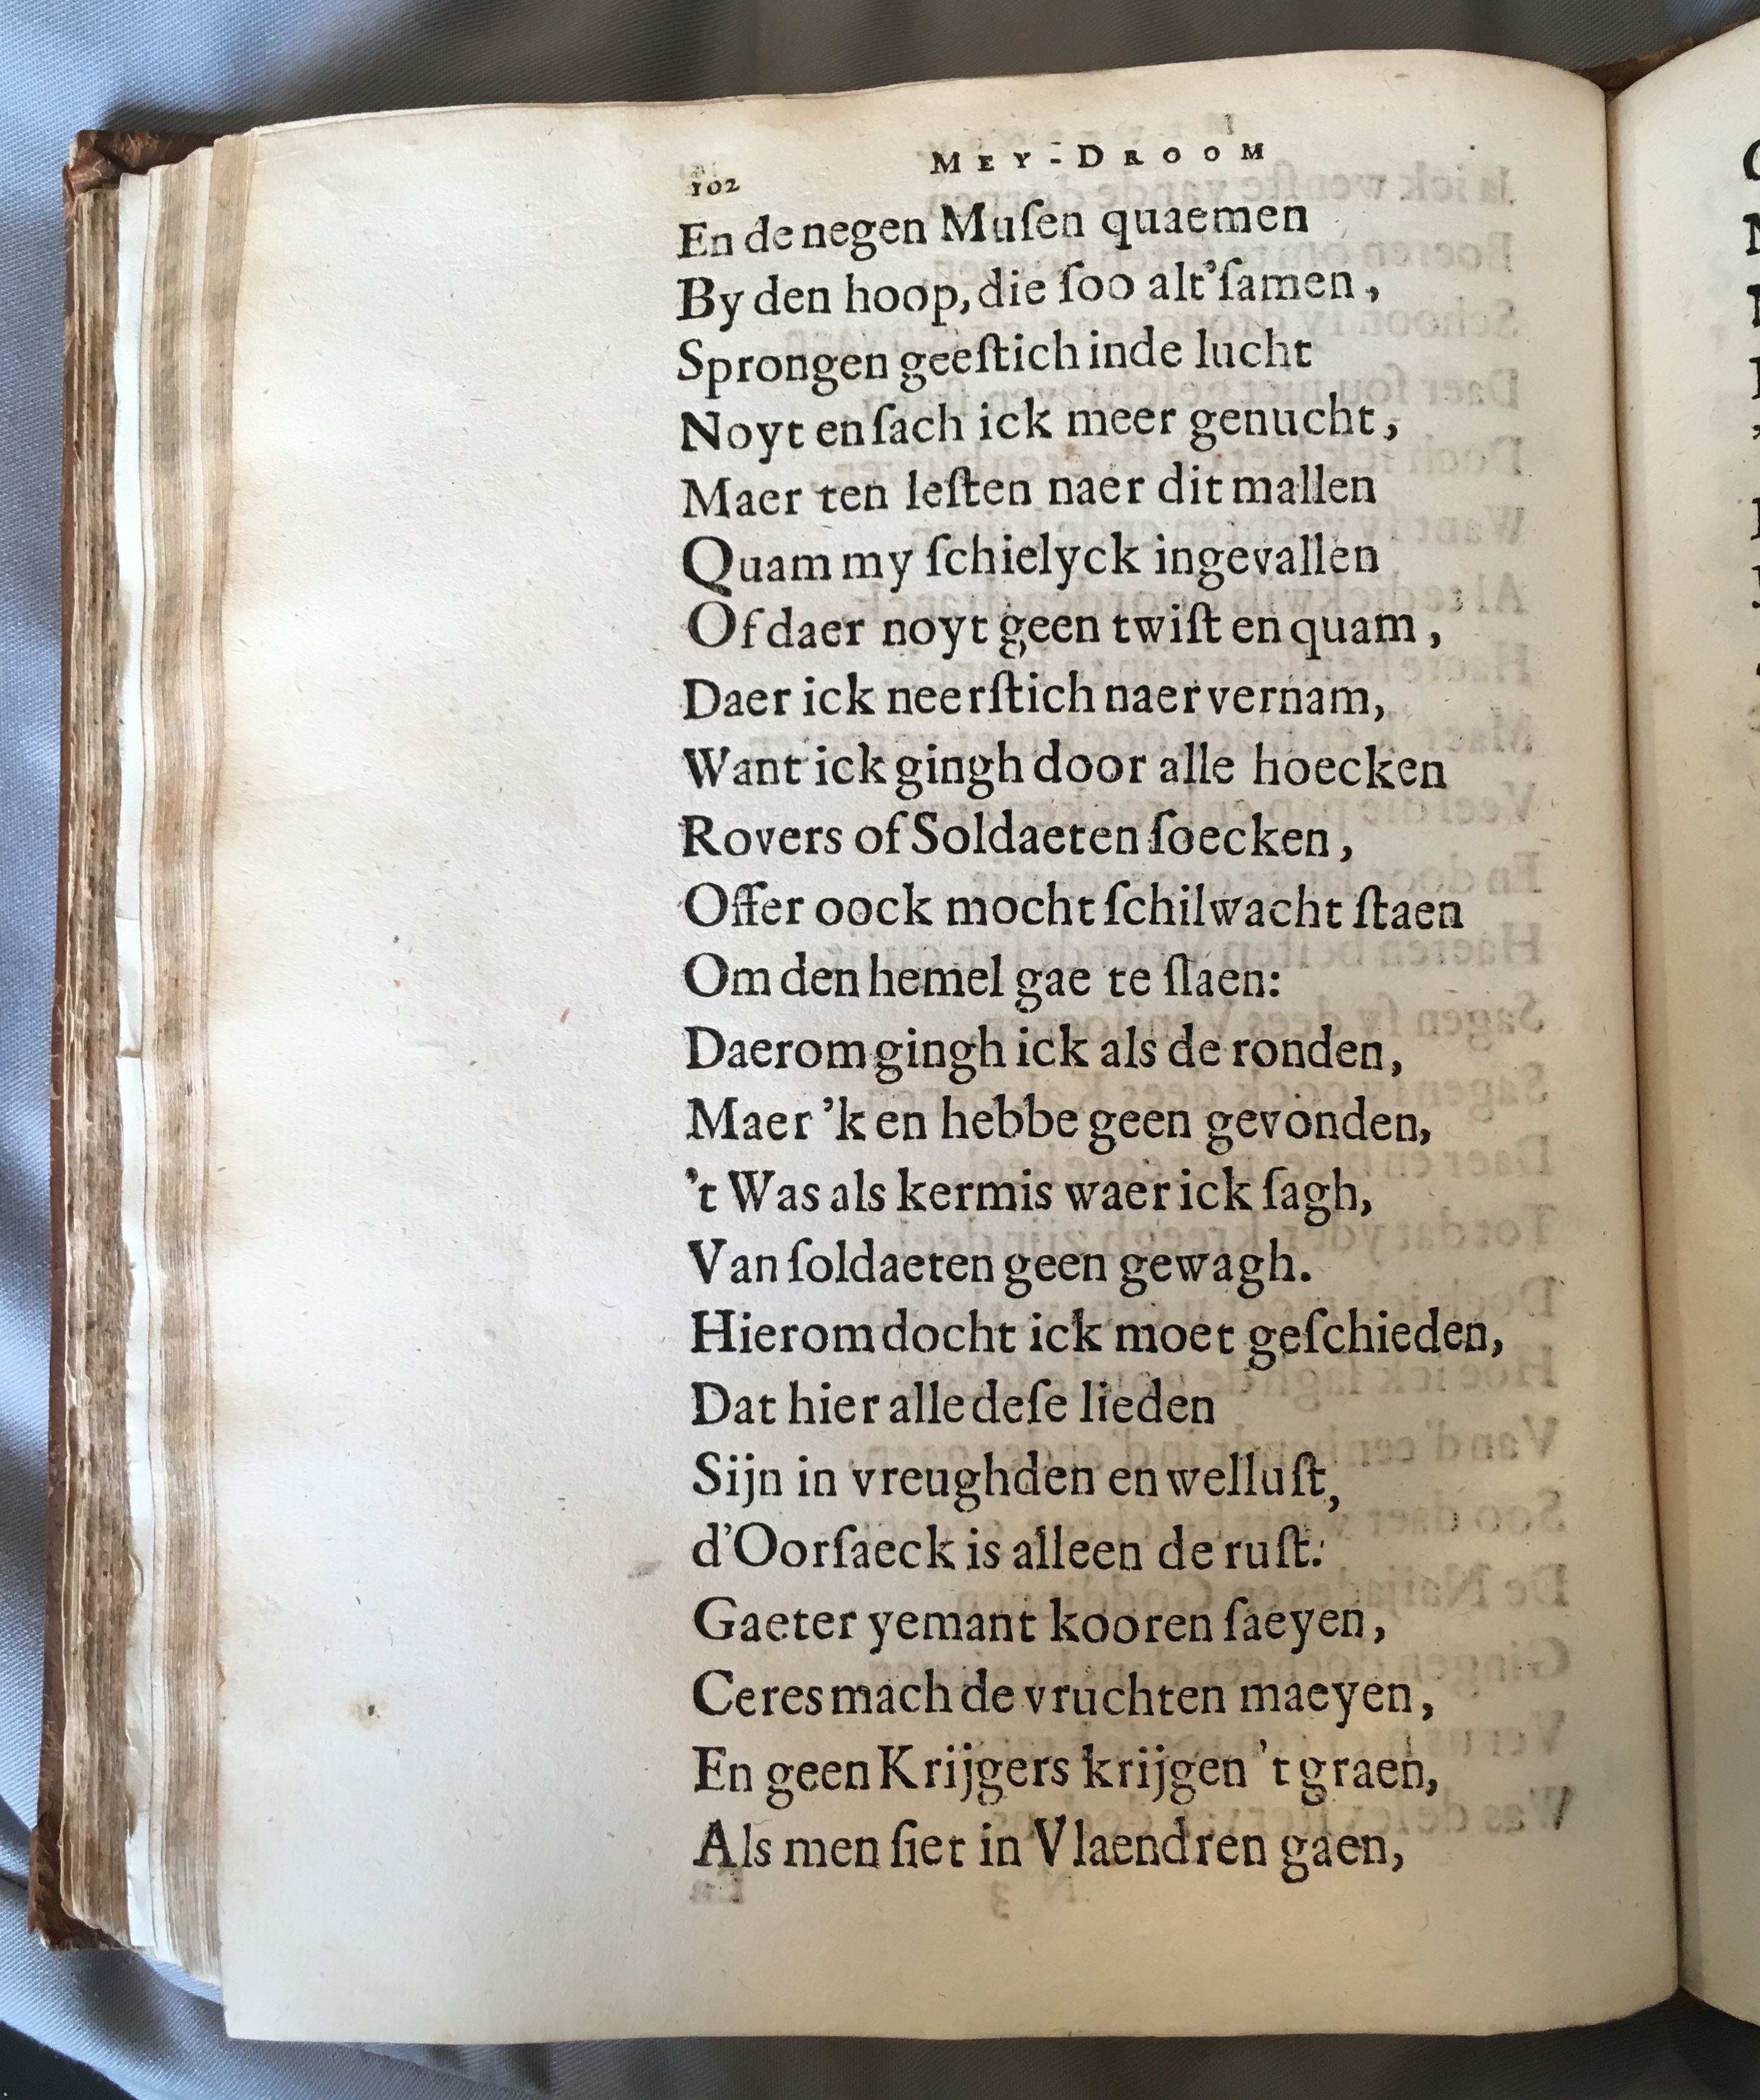 102
MEY-DROOM
En de negen Muſen quaemen
By den hoop, die ſoo alt'ſamen,
Sprongen geeſtich inde lucht
Noyt en ſach ick meer genucht,
Maer ten leſten naer dit mallen
Quam my ſchielyck ingevallen
Of daer noyt geen twiſt en quam,
Daer ick neerſtich naer vernam,
Want ick gingh door alle hoecken
Rovers of Soldaeten ſoecken,
Offer oock mocht ſchilwacht ſtaen
Om den hemel gae te ſlaen:
Daerom gingh ick als de ronden,
Maer 'k en hebbe geen gevonden,
't Was als kermis waer ick ſagh,
Van ſoldaeten geen gewagh.
Hierom docht ick moet geſchieden,
Dat hier alle deſe lieden
Sijn in vreughden en welluſt,
d'Oorſaeck is alleen de ruſt:
Gaeter yemant kooren ſaeyen,
Ceres mach de vruchten maeyen,
En geen Krijgers krijgen 't graen,
Als men ſiet in Vlaendren gaen,